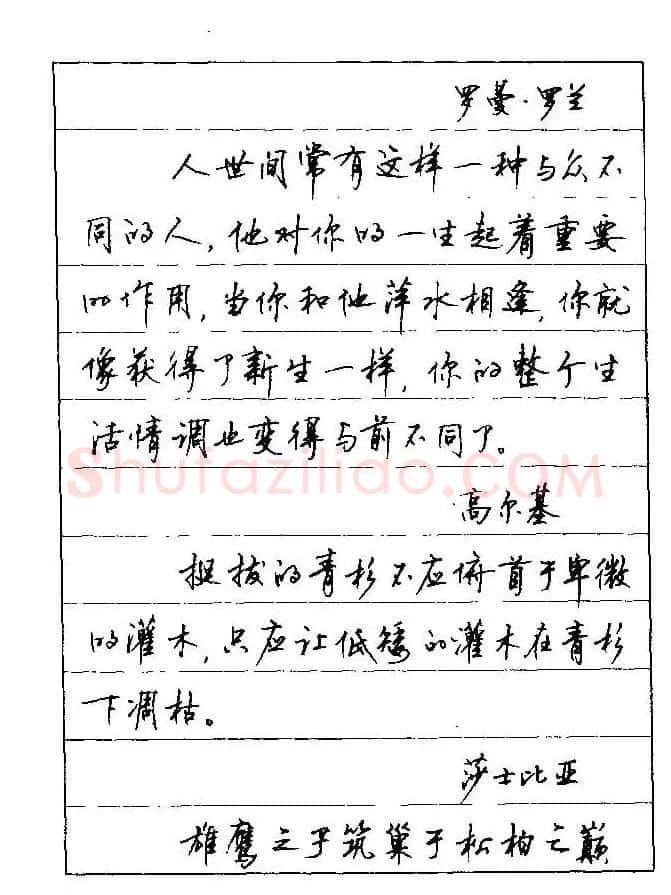 罗曼·罗兰
人世间常有这样一种与众不
同的人，他对你的一生起着重要
的作用，当你和他萍水相逢，你就
像获得了新生一样，你的整个生
活情调也变得与前不同了。
shufaziliao.COM
高尔基
挺拔的青杉不应俯首于卑微
的灌木，只应让低矮的灌木在青杉
下凋枯。
莎士比亚
雄鹰之子筑巢于松柏之巅